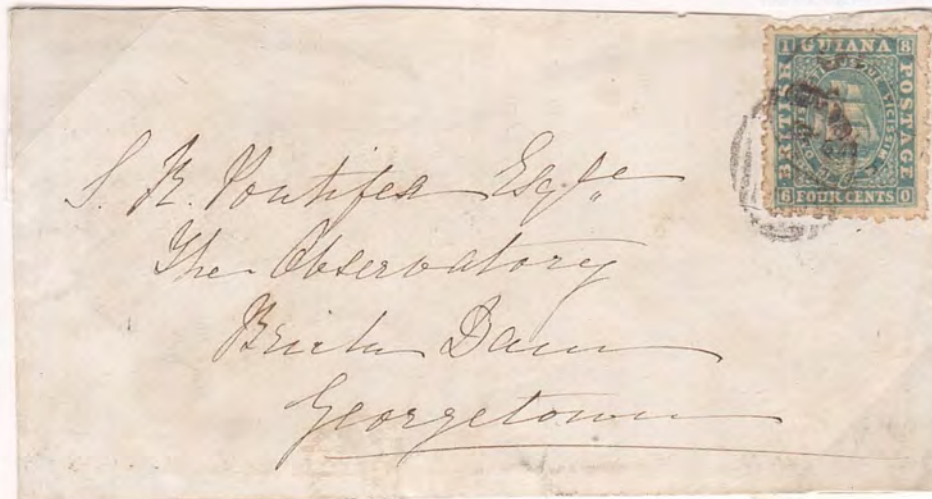 1 GUIANA 8
BRITISH
POSTAGE
6 FOUR CENTS 0
S. R. Pontifex Esq.re
The Observatory
Brick Dam
Georgetown